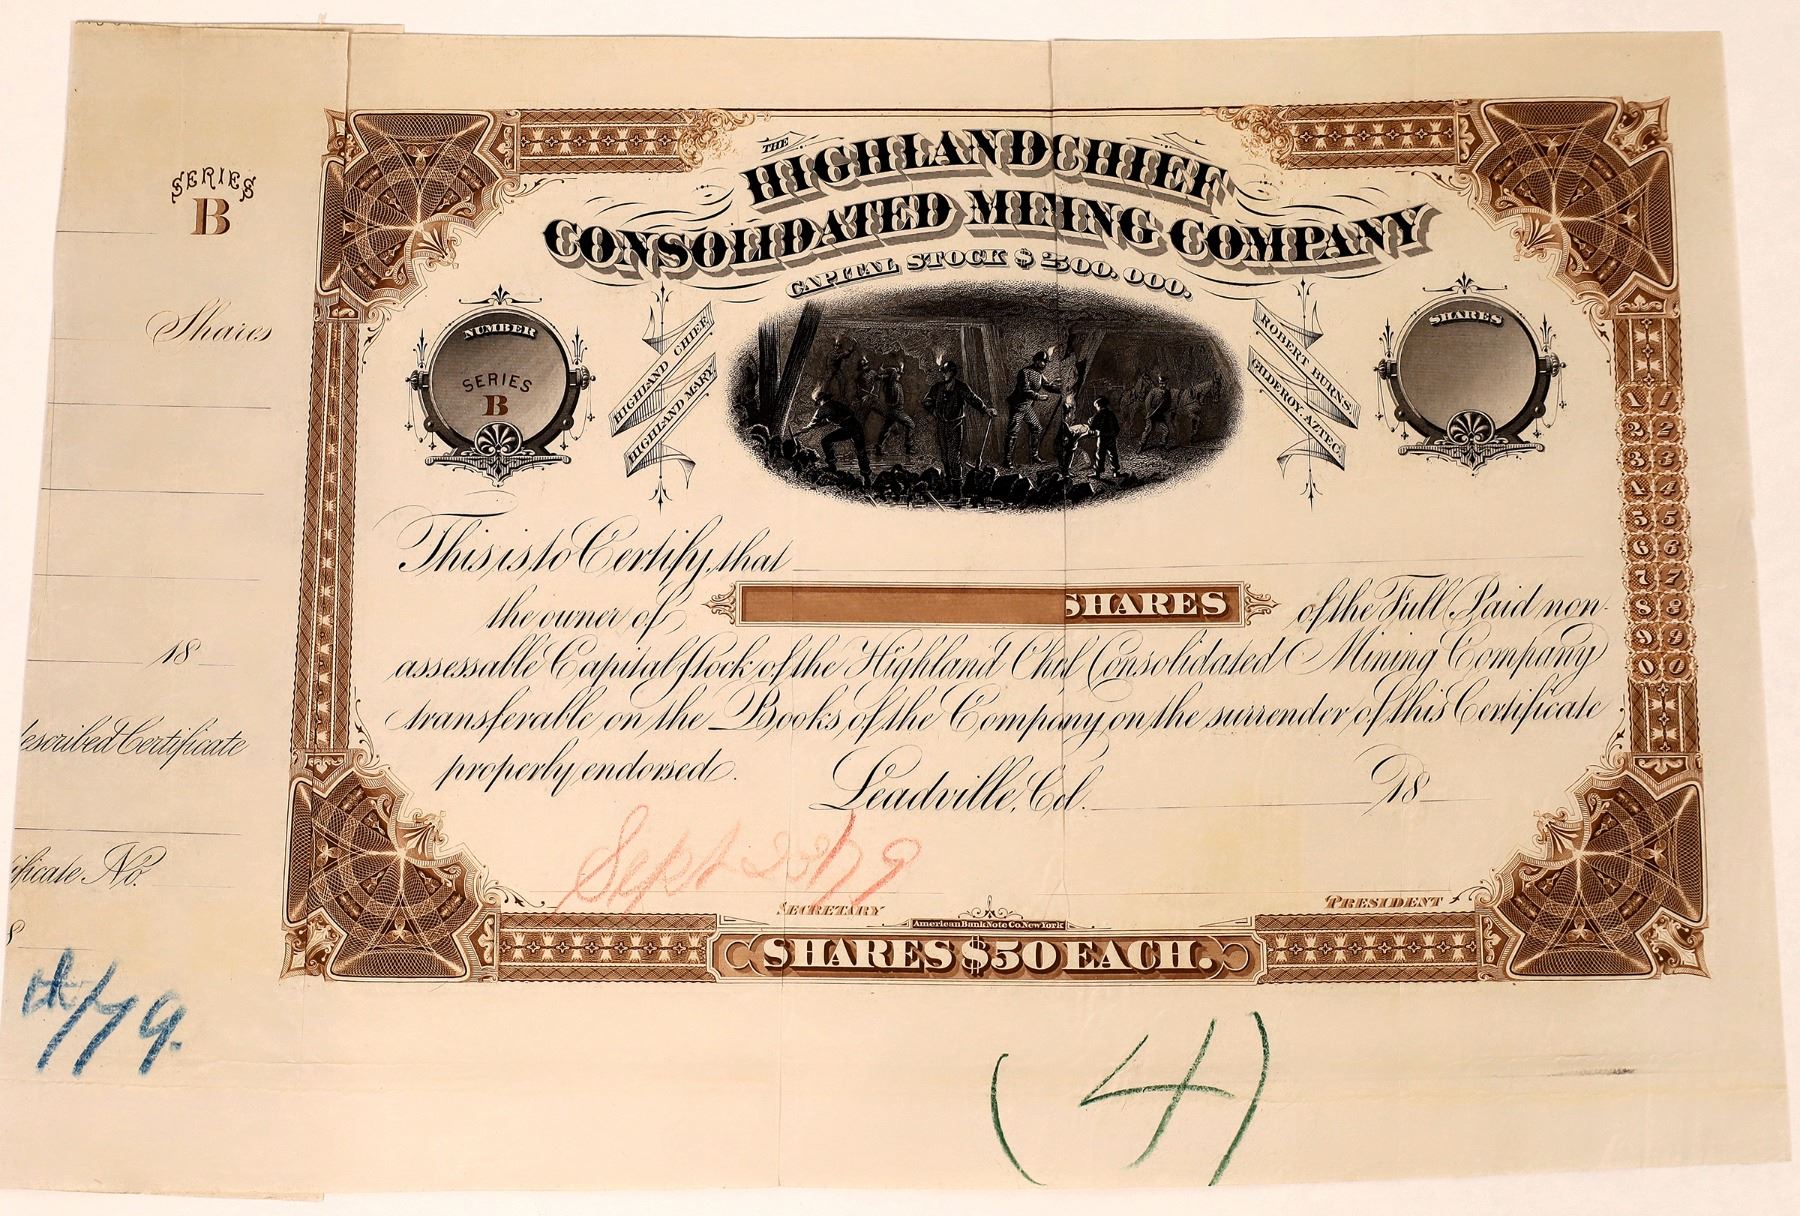 SERIES
B
Shares
18
escribed Certificate
ificate No.
/79.
THE
HIGHLAND CHIEF
CONSOLIDATED MINING COMPANY
CAPITAL STOCK $500.000.
NUMBER
SERIES
B
HIGHLAND CHIEF
HIGHLAND MARY
ROBERT BURNS
GILDEROY. AZTEC.
SHARES
This is to Certify, that
the owner of SHARES of the Full Paid non-
assessable Capital Stock of the Highland Chief Consolidated Mining Company
transferable on the Books of the Company on the surrender of this Certificate
properly endorsed. Leadville, Col. 18
1 1
2 2
3 3
4 4
5 5
6 6
7 7
8 8
9 9
0 0
Sept 20th/79
SECRETARY
PRESIDENT
American Bank Note Co. New York
SHARES $50 EACH.
(4)